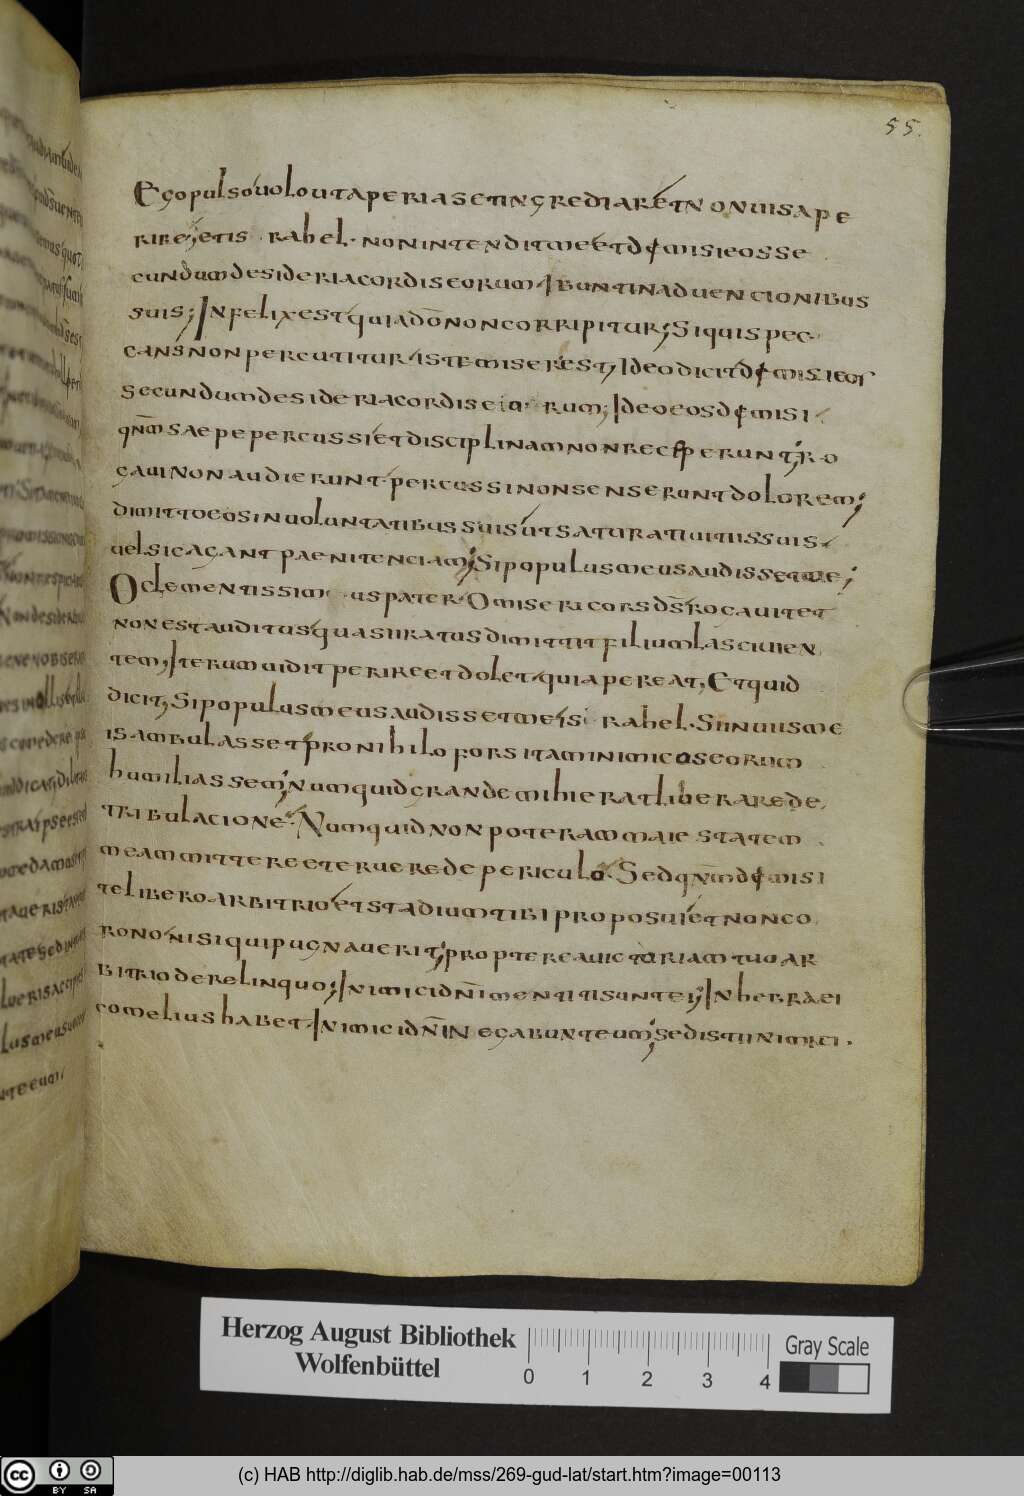 55.
Ego pulso uolo ut aperias et ingrediar et non uis ape
rire; et israhel non intendit me et dimisi eos se
cundum desideria cordis eorum Ibunt in aduencionibus
suis; Infelix est qui a dō non corripitur; Si quis pec
cans non percutitur iste miser est, Ideo dicit dimisi eos
secundum desideria cordis eorum; Ideo eos dimisi
qnm saepe percussi et disciplinam non receperunt; Ro
gaui Non audierunt percussi non senserunt dolorem;
dimitto eos in uoluntatibus suis ut saturati uitiis suis
uel sic agant paenitenciam; Si populus meus audisset me;
O clementissimus pater O misericors ds rogauit et
non est auditus quasi iratus dimittit filium lasciuien
tem, Iterum uidit perire et dolet quia pereat, Et quid
dicit, Si populus meus audisset me israhel. Si in uiis me
is ambulasset pro nihilo forsitam inimicos eorum
humiliassem; Numquid grande mihi erat liberare de
tribulacione. Numquid non poteram maiestatem
meam mittere et eruere de periculo. Sed qnm dimisi
te libero arbitrio et stadium tibi proposui et non co
rono nisi qui pugnauerit; propterea uictoriam tuo ar
bitrio derelinquo; Inimici dni mentiti sunt ei; In hebraei
co melius habet. Inimici dni Negabunt eum; sed isti inimici.
Herzog August Bibliothek
Wolfenbüttel
0 1 2 3 4
Gray Scale
cc BY SA
(c) HAB http://diglib.hab.de/mss/269-gud-lat/start.htm?image=00113